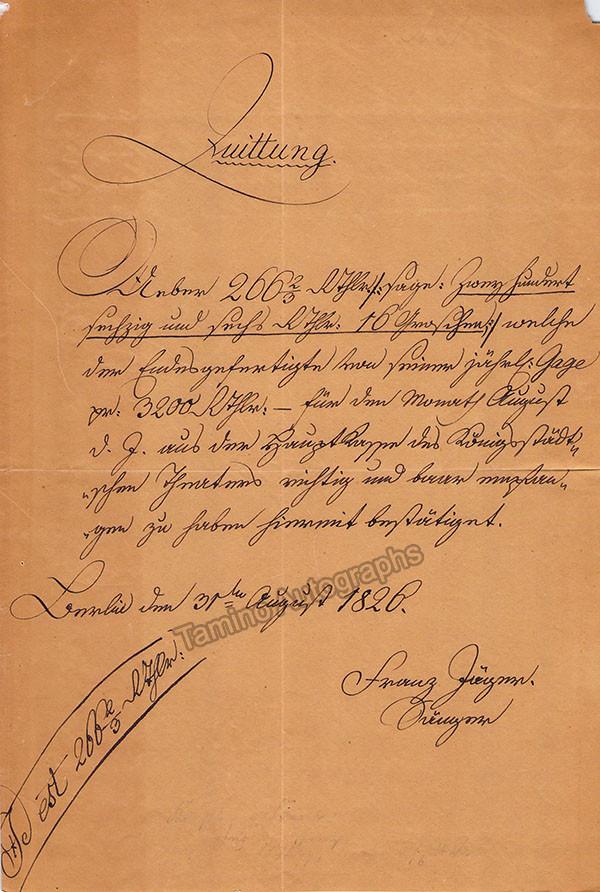 Quittung.
Ueber 266 2/3 RThlr /: sage: Zwey hundert
sechzig und sechs RThlr: 16 Groschen :/ welche
der Endesgefertigte von seiner jährl: Gage
pr: 3200 RThlr: – für den Monath August
d. J. aus der Haupt Kasse des Königsstädt„
„schen Theaters richtig und baar empfan„
„gen zu haben hiermit bestätiget.
Berlin den 31ten August 1826.
Tamino Autographs
Franz Jäger.
Sänger
est 266 2/3 RThlr: